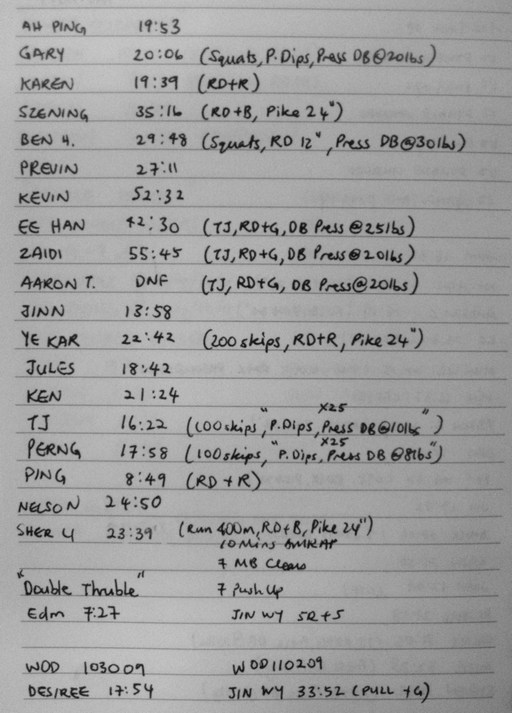 AH PING 19:53
GARY 20:06 (Squats, P.Dips, Press DB@20lbs)
KAREN 19:39 (RD+R)
SZENING 35:16 (RD+B, Pike 24")
BEN H. 29:48 (Squats, RD 12", Press DB@30lbs)
PREVIN 27:11
KEVIN 52:32
EE HAN 42:30 (TJ, RD+G, DB Press @25lbs)
ZAIDI 55:45 (TJ, RD+G, DB Press@20lbs)
AARON T. DNF (TJ, RD+G, DB Press@20lbs)
JINN 13:58
YE KAR 22:42 (200 skips, RD+R, Pike 24")
JULES 18:42
KEN 21:24
X25
TJ 16:22 (100 skips, "P.Dips, Press DB@10lbs")
X25
PERNG 17:58 (100skips, "P.Dips, Press DB @8lbs")
PING 8:49 (RD + R)
NELSON 24:50
SHER LI 23:39 (Run 400m, RD+B, Pike 24")
10 Mins AMRAP
7 MB Cleans
"Double Thruble" 7 Push Up
Edm 7:27 JIN WY 5R+5
WOD 103009 WOD110209
DESIREE 17:54 JIN WY 33:52 (PULL +G)